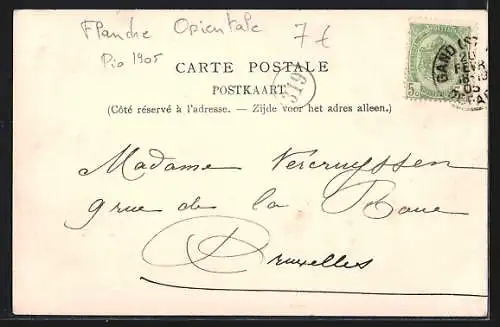 Flandre Orientale 7€
Pio 1905
CARTE POSTALE
POSTKAART
319
(Côté réservé à l'adresse. — Zijde voor het adres alleen.)
GAND
26
FEVR
05
5c
Madame Vercruyssen
9 rue de la Roue
Bruxelles